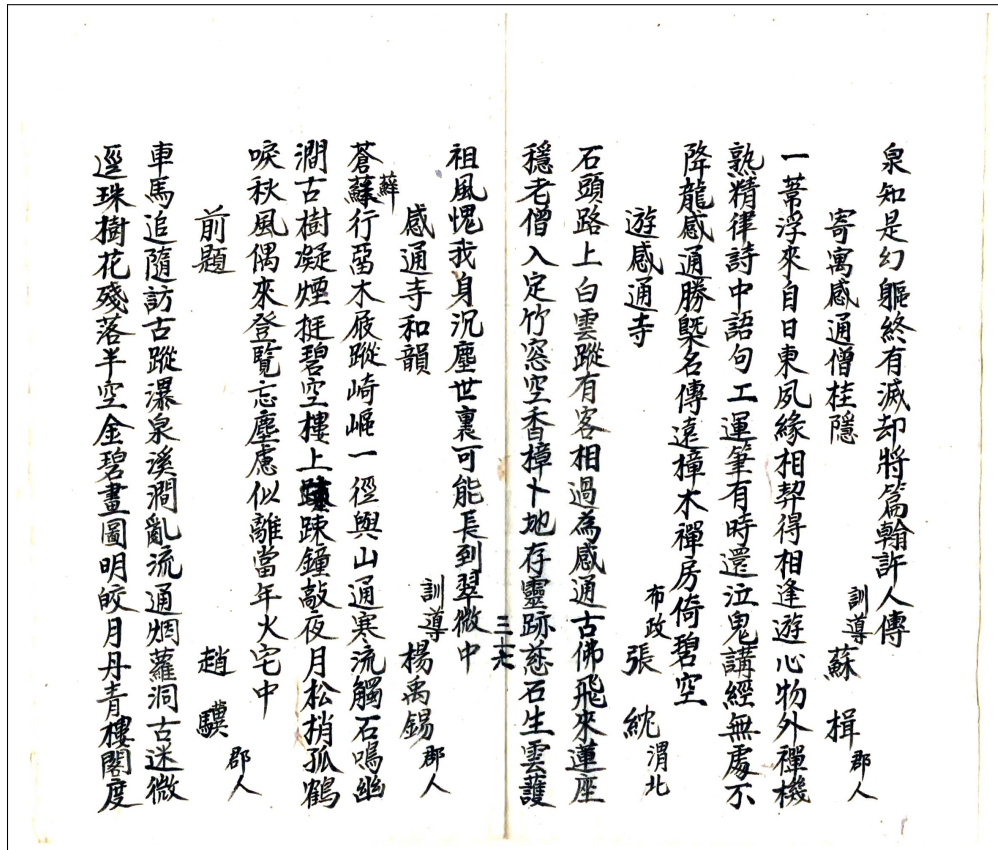 泉知是幻軀終有滅却將篇翰許人傳
寄寓感通僧桂隱
訓導蘇楫郡人
一葦浮來自日東夙緣相契得相逢遊心物外禪機
熟精律詩中語句工運筆有時還泣鬼講經無處不
降龍感通勝槩名傳遠樟木禪房倚碧空
遊感通寺
布政張紞渭北
石頭路上白雲蹤有客相過為感通古佛飛來蓮座
穩老僧入定竹窓空香樟卜地存靈跡慈石生雲護
祖風愧我身沉塵世裏可能長到翠微中
感通寺和韻
訓導楊禹錫郡人
蒼蘚行畱木屐蹤崎嶇一徑與山通寒流觸石鳴幽
澗古樹凝煙挺碧空樓上踈鐘敲夜月松梢孤鶴
唳秋風偶來登覽忘塵慮似離當年火宅中
前題
趙驥郡人
車馬追隨訪古蹤瀑泉溪澗亂流通烟蘿洞古迷微
逕珠樹花殘落半空金碧畫圖明皎月丹青樓閣度